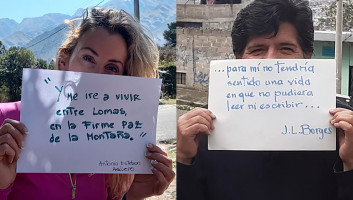 "Y me iré a vivir
entre Lomas,
en la firme paz
de la Montaña."
Antonio Esteban
Agüero
...para mí no tendría
sentido una vida
en que no pudiera
leer ni escribir...
J.L. Borges